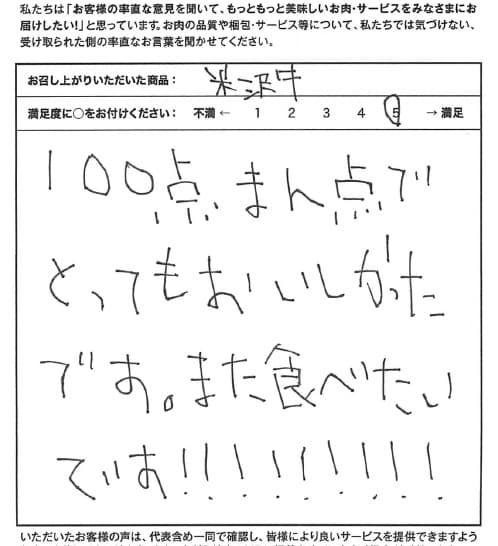 私たちは「お客様の率直な意見を聞いて、もっともっと美味しいお肉・サービスをみなさまにお
届けしたい!」と思っています。お肉の品質や梱包・サービス等について、私たちでは気づけない、
受け取られた側の率直なお言葉を聞かせてください。
お召し上がりいただいた商品： 米沢牛
満足度に○をお付けください： 不満 ← 1 2 3 4 5 → 満足
100点まん点で
とってもおいしかった
です。また食べたい
です!!!!!!!!!
いただいたお客様の声は、代表含め一同で確認し、皆様により良いサービスを提供できますよう